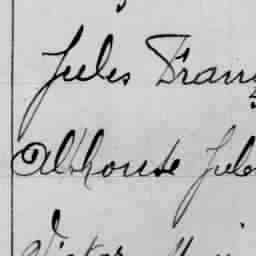 Jules Fran
Alphonse Jule
Victor